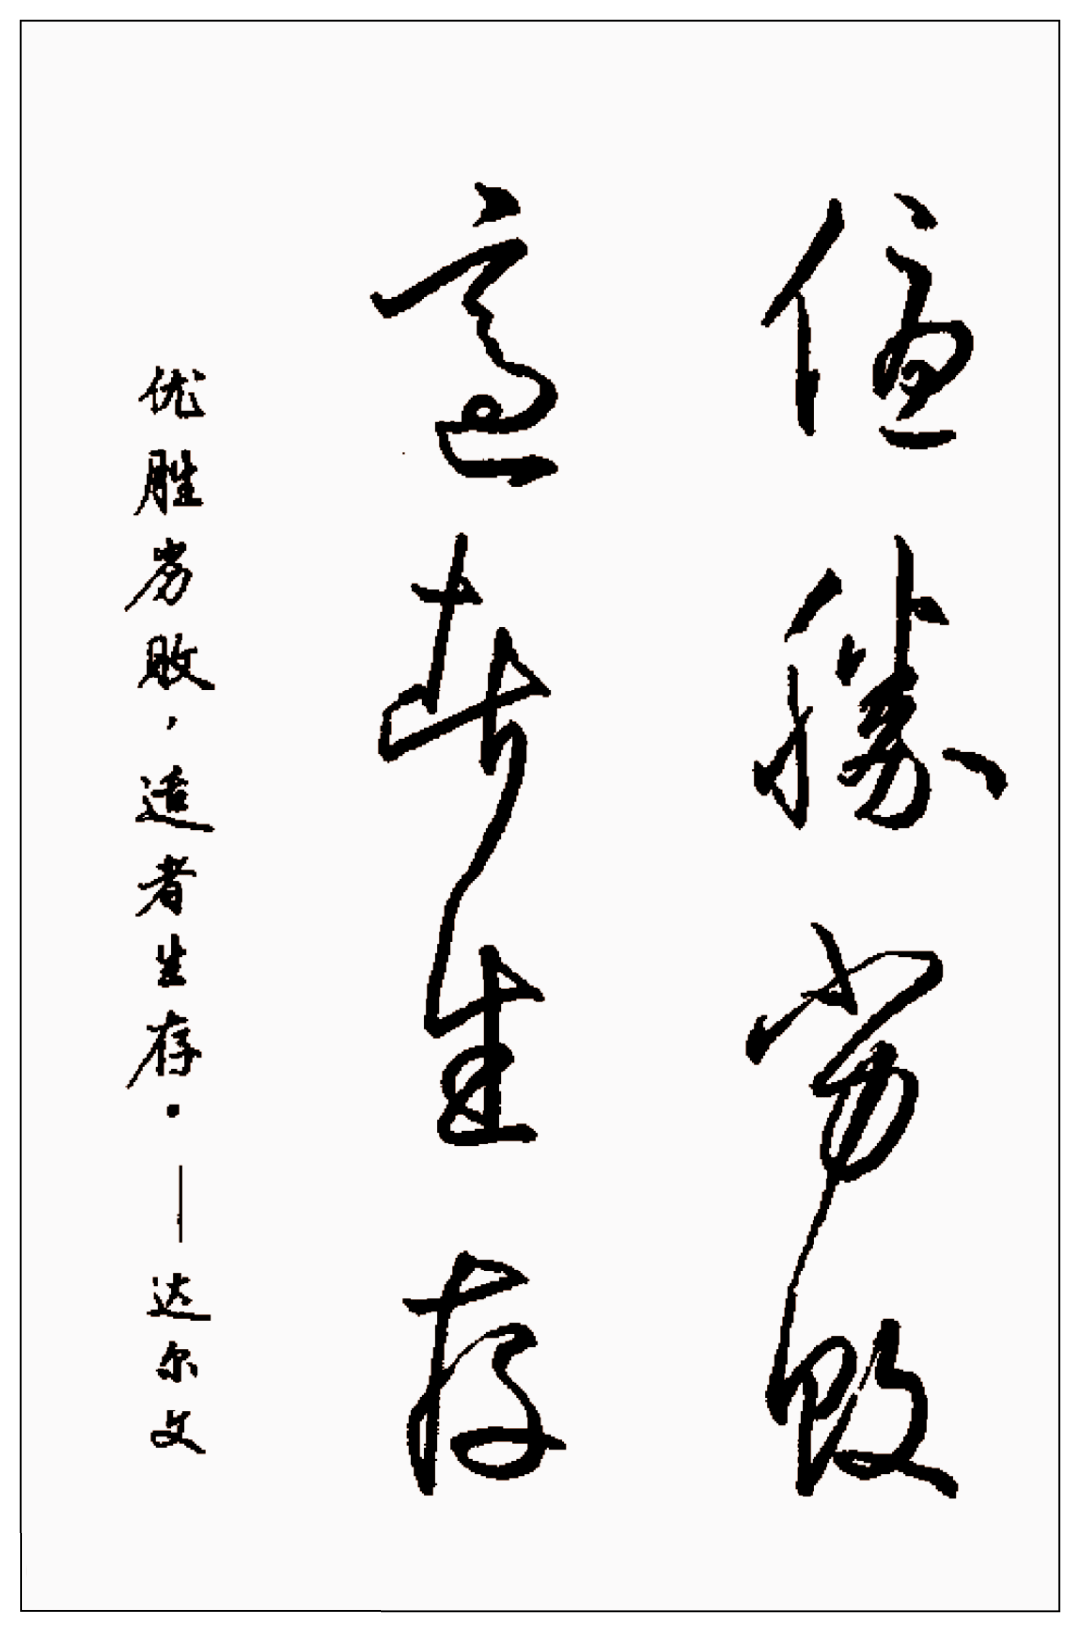 优胜劣败
适者生存
优胜劣败，适者生存。——达尔文